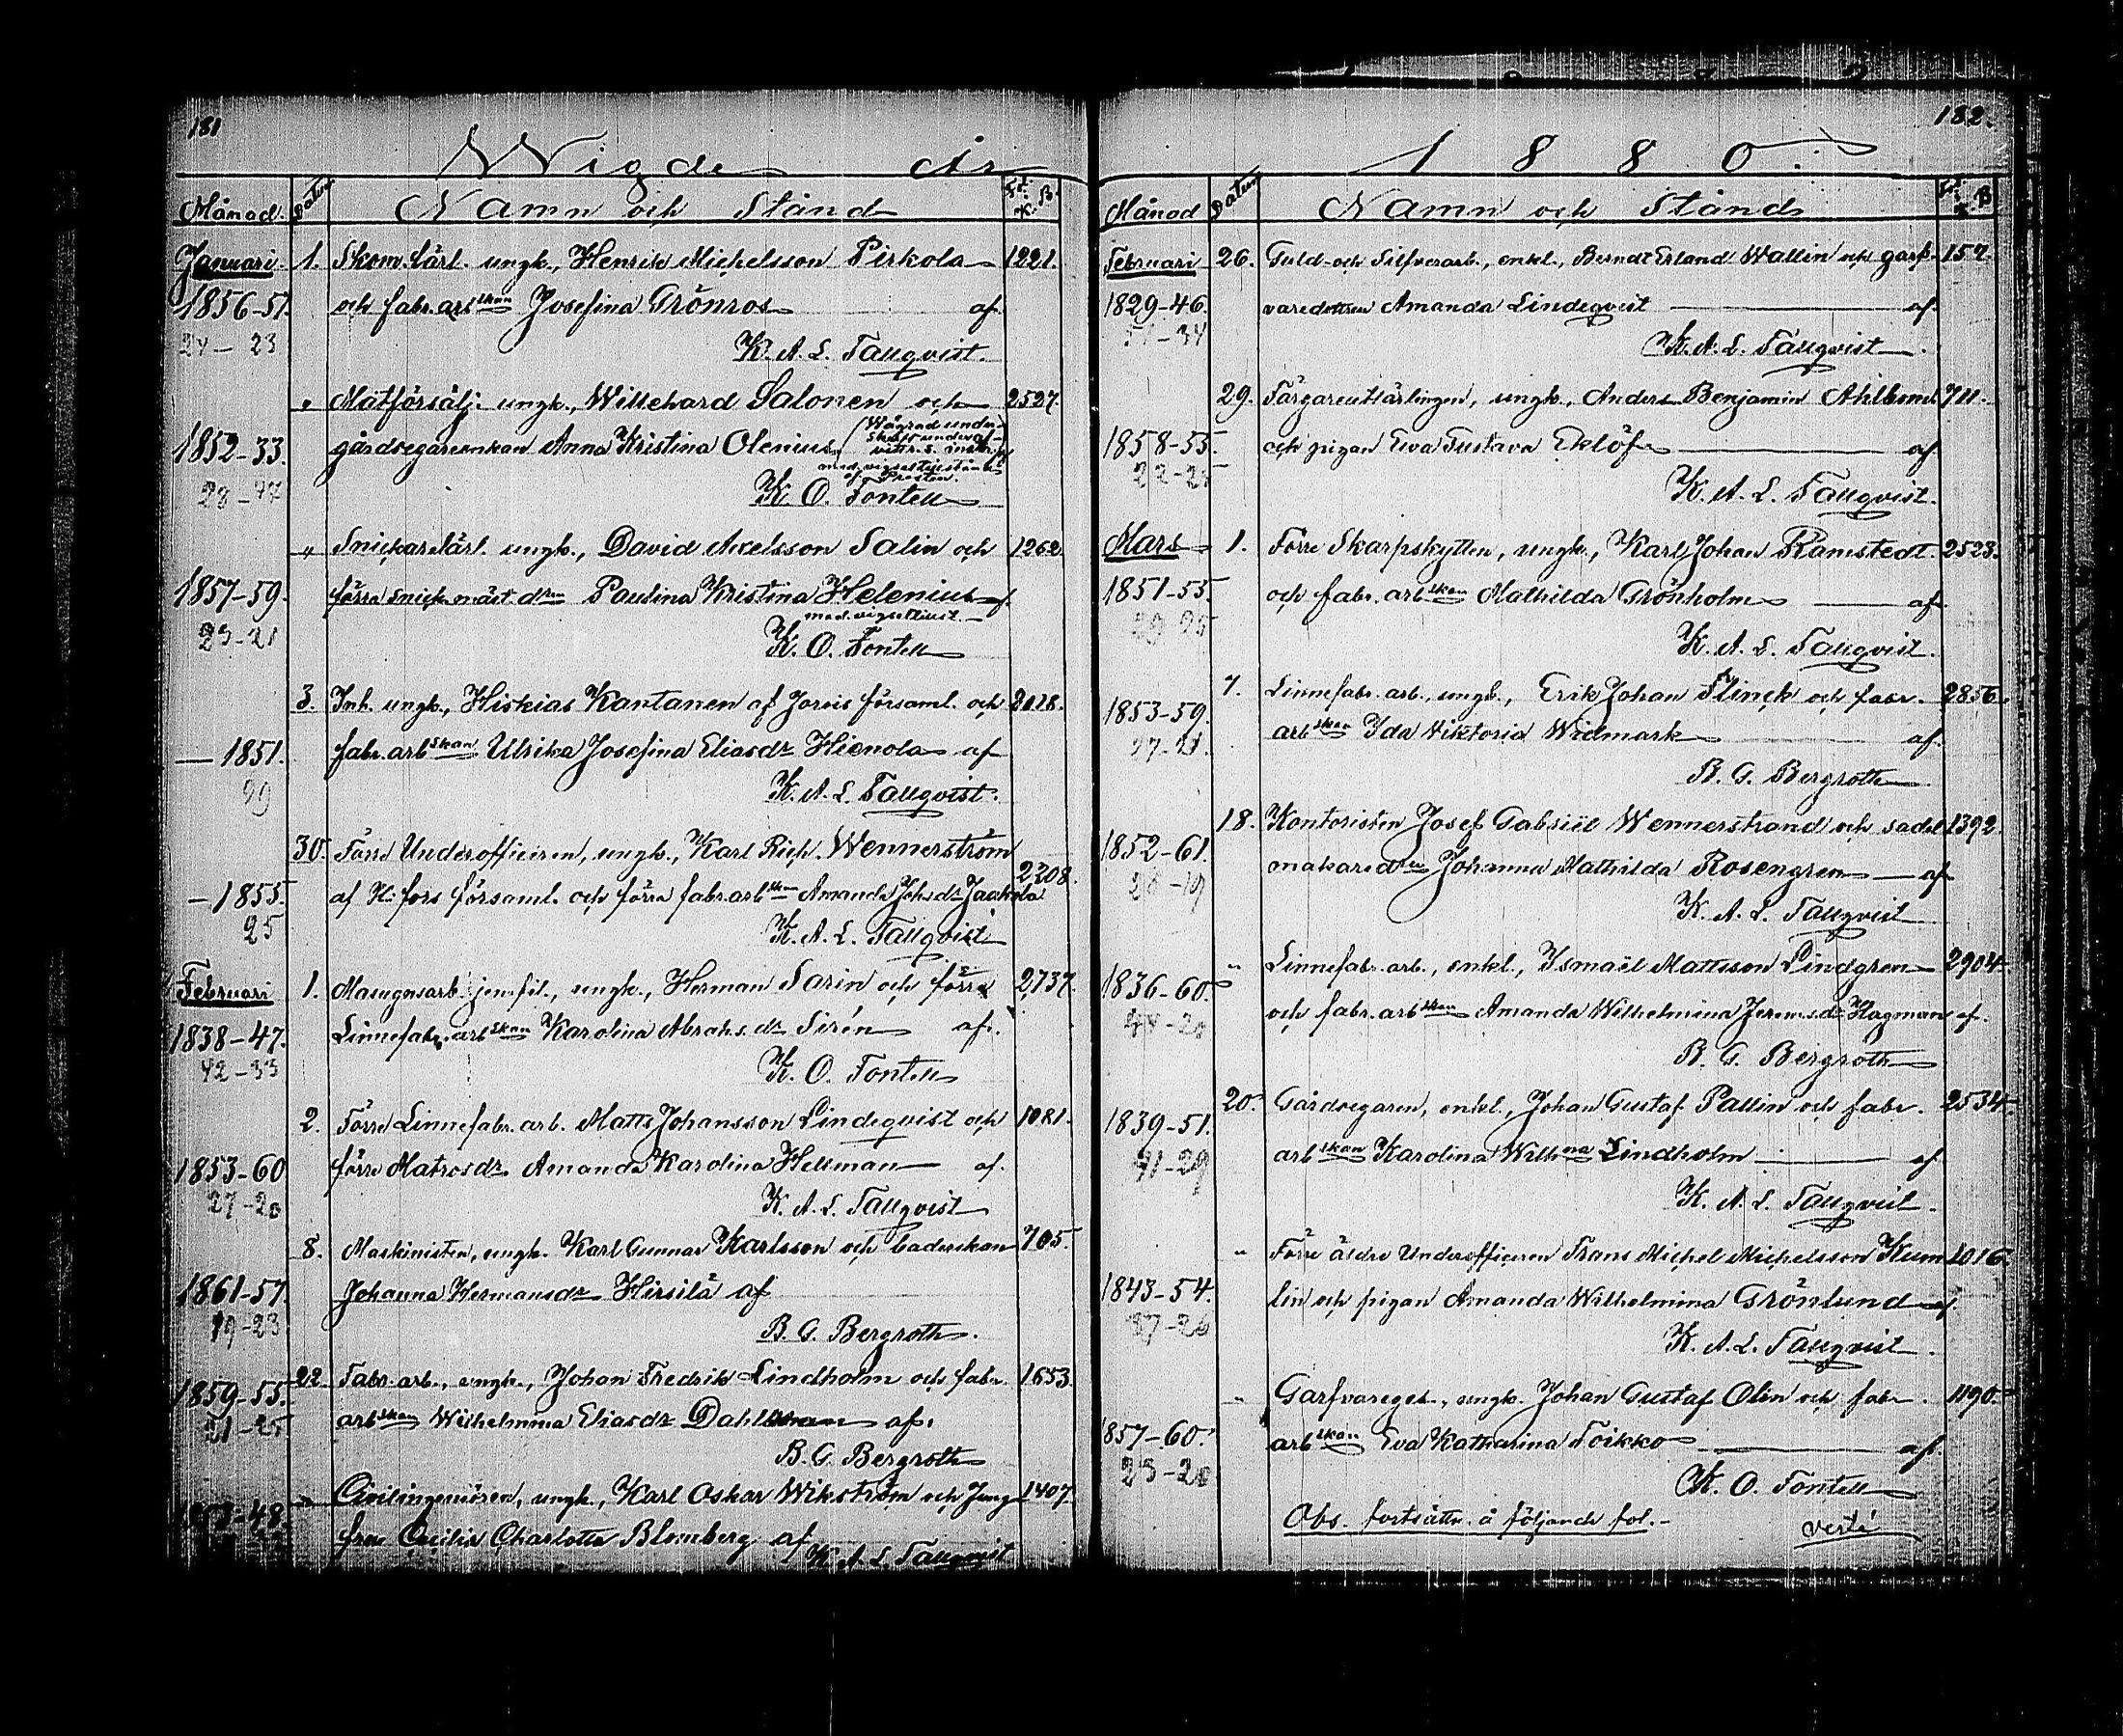 181
Wigde År
Månad. Datum Namn och Stånd Fol. i K. B.
Januari. 1. Skom. lärl. ungk., Henrik Michelsson Pirkola 1221.
1856-57. och fabr. arbskan Josefina Grönroos af
24-23 K. A. L. Tallqvist.
" Matförsälj. ungk., Willehard Salonen och 2527.
1852-33. gårdsegareenkan Anna Kristina Olenius
med vigseltillstånd
28-47 K. O. Fontell
" Snickarelärl. ungk., David Axelsson Salin och 1262
1857-59. förra snick. mäst. dren Paulina Kristina Helenius af.
med vigseltillst.
23-21 K. O. Fontell
3. Inh. ungk., Hiskias Kantanen af Jorois församl. och 2028.
— 1851. fabr. arbskan Ulrika Josefina Eliasdr Hienola af
29 K. A. L. Tallqvist.
30. Förre Underofficeren, ungk., Karl Rich. Wennerström 2308.
— 1855. af H:fors församl. och förra fabr. arbskan Amanda Johsdr Jaakola
25 K. A. L. Tallqvist
Februari 1. Masugnsarb. jemfil., ungk., Herman Sarin och förra 2737.
1838-47. Linnefabr. arbskan Karolina Abrahs.dr Sirén af.
42-33 K. O. Fontell
2. Förre Linnefabr. arb. Matts Johansson Lindeqvist och 1081.
1853-60 förra Matrosdr Amanda Karolina Hellman af.
27-20 K. A. L. Tallqvist
8. Maskinisten, ungk. Karl Gunnar Karlsson och baderskan 705.
1861-57. Johanna Hermansdr Hirsilä af
19-23 B. G. Bergroth.
22 Fabr. arb., ungk., Johan Fredrik Lindholm och fabr. 1653.
1859-55. arbskan Wilhelmina Eliasdr Dahlman af.
21-25 B. G. Bergroth
" Civilingeniören, ungk., Karl Oskar Wikström och Jung- 1407.
-48. frun Cecilia Charlotta Blomberg af
K. A. L. Tallqvist
182.
1880.
Månad Datum Namn och Stånd Fol. i K. B
Februari 26. Guld- och Silfverarb., enkl., Berndt Erland Wallin och garf- 157.
1829-46. varedottren Amanda Lindeqvist af.
51-34 K. A. L. Tallqvist.
29. Färgareutlärlingen, ungk., Anders Benjamin Ahlbom 711.
1858-55. och pigan Eva Gustava Eklöf af
22-25 K. A. L. Tallqvist.
Mars 1. Förre Skarpskytten, ungk., Karl Johan Ramstedt. 2523.
1851-55. och fabr. arbskan Mathilda Grönholm af.
29-25 K. A. L. Tallqvist.
7. Linnefabr. arb., ungk., Erik Johan Flinck och fabr. 2856.
1853-59. arbskan Ida Viktoria Widmark af.
27-21. B. G. Bergroth
18. Kontoristen Josef Gabriel Wennerstrand och sadel- 1392.
1852-61. makaredren Johanna Mathilda Rosengren af
28-19 K. A. L. Tallqvist
" Linnefabr. arb., enkl., Ismaël Mattsson Lindgren 2904.
1836-60. och fabr. arbskan Amanda Wilhelmina Jeremsdr Hagman af.
44-20 B. G. Bergroth
20. Gårdsegaren, enkl., Johan Gustaf Pallin och fabr. 2534.
1839-51. arbskan Karolina Wilhna Lindholm af
41-29 K. A. L. Tallqvist.
" Förre äldre Underofficeren Frans Michel Michelsson Kum- 1016.
1843-54. lin och pigan Amanda Wilhelmina Grönlund af
37-26 K. A. L. Tallqvist.
" Garfvareges., ungk. Johan Gustaf Olin och fabr. 1190.
1857-60. arbskan Eva Katharina Toikko af
23-20 K. O. Fontell
Obs. fortsättn. å följande fol.- verte